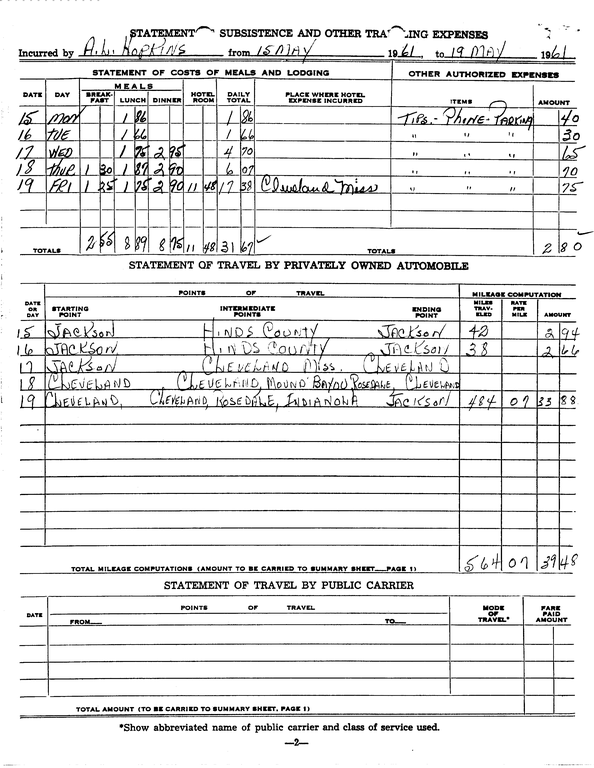 STATEMENT SUBSISTENCE AND OTHER TRA ING EXPENSES
Incurred by A.L. HOPKINS from 15 MAY 1961, to 19 MAY 1961
STATEMENT OF COSTS OF MEALS AND LODGING OTHER AUTHORIZED EXPENSES
DATE DAY MEALS BREAKFAST LUNCH DINNER HOTEL ROOM DAILY TOTAL PLACE WHERE HOTEL EXPENSE INCURRED ITEMS AMOUNT
15 MON 1 86 1 86 TIPS.- PHONE- PARKING 40
16 TUE 1 66 1 66 " " " 30
17 WED 1 75 2 95 4 70 " " " 65
18 THUR 1 30 1 87 2 90 6 07 " " " 70
19 FRI 1 25 1 75 2 90 11 48 17 38 Cleveland Miss " " " 75
TOTALS 2 55 8 89 8 75 11 48 31 67 TOTALS 2 80
STATEMENT OF TRAVEL BY PRIVATELY OWNED AUTOMOBILE
POINTS OF TRAVEL MILEAGE COMPUTATION
DATE OR DAY STARTING POINT INTERMEDIATE POINTS ENDING POINT MILES TRAVELED RATE PER MILE AMOUNT
15 JACKSON HINDS COUNTY JACKSON 42 2 94
16 JACKSON HINDS COUNTY JACKSON 38 2 66
17 JACKSON CLEVELAND MISS. CLEVELAND
18 CLEVELAND CLEVELAND, MOUND BAYOU ROSEDALE, CLEVELAND
19 CLEVELAND, CLEVELAND, ROSEDALE, INDIANOLA JACKSON 484 07 33 88
TOTAL MILEAGE COMPUTATIONS (AMOUNT TO BE CARRIED TO SUMMARY SHEET PAGE 1) 564 07 39 48
STATEMENT OF TRAVEL BY PUBLIC CARRIER
DATE POINTS OF TRAVEL MODE OF TRAVEL* FARE PAID AMOUNT
FROM TO
TOTAL AMOUNT (TO BE CARRIED TO SUMMARY SHEET, PAGE 1)
*Show abbreviated name of public carrier and class of service used.
—2—